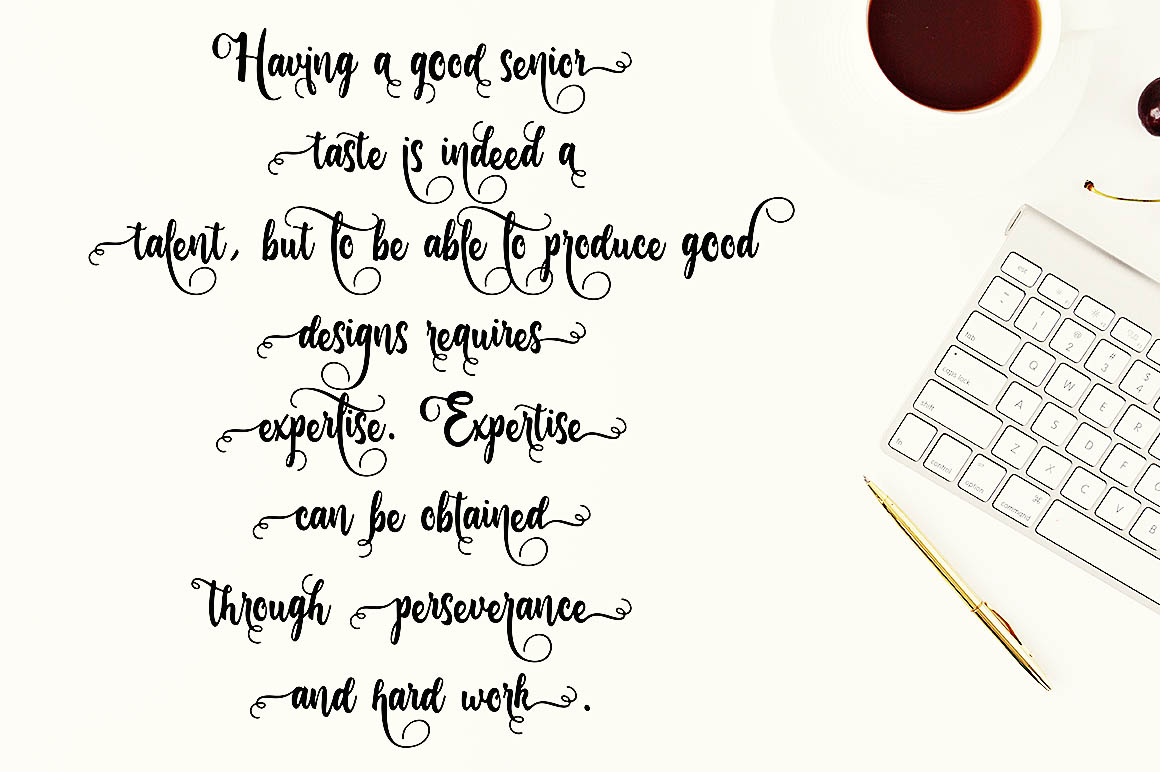 Having a good senior
taste is indeed a
talent, but to be able to produce good
designs requires
expertise. Expertise
can be obtained
through perseverance
and hard work.
esc
tab
caps lock
shift
fn
control
option
command
⌘
~
!
1
@
2
#
3
$
4
Q
W
E
R
A
S
D
F
Z
X
C
V
B